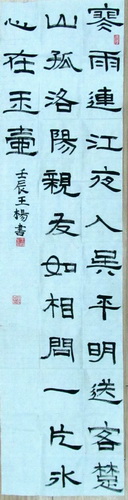 寒雨連江夜入吴平明送客楚
山孤洛陽親友如相問一片冰
心在玉壷
壬辰王楊書